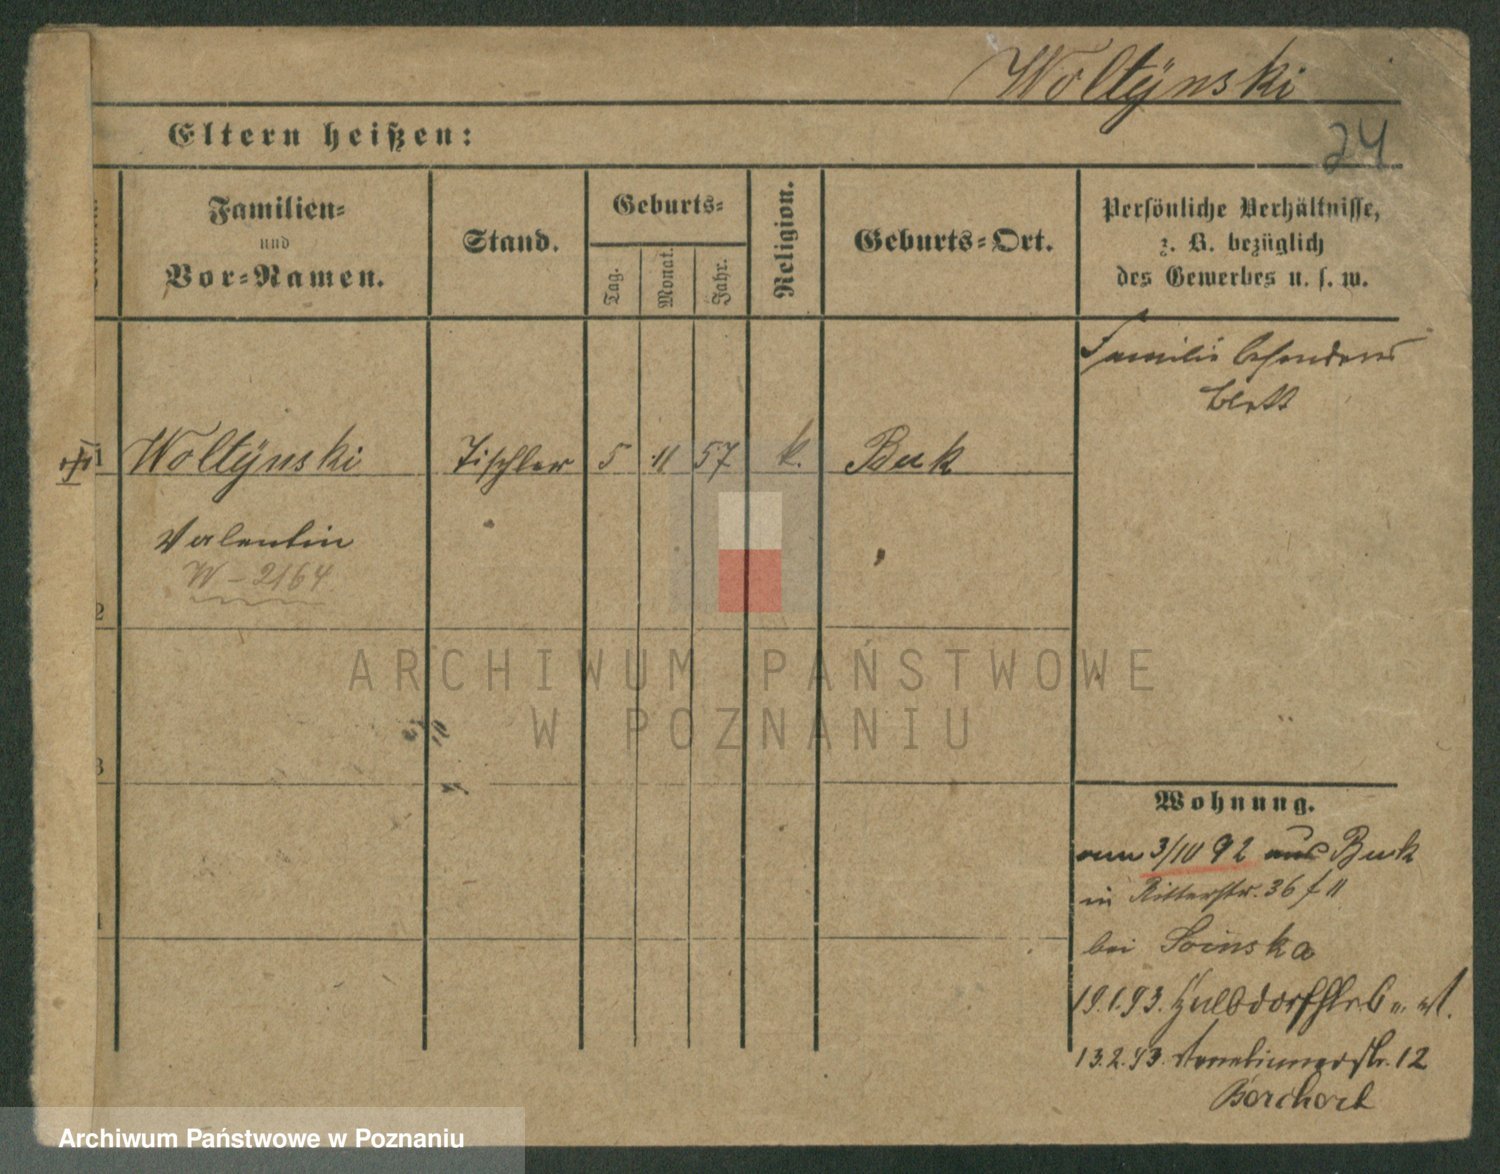 Woltÿnski
24
Eltern heißen:
Familien-
und
Vor-Namen.
Stand.
Geburts-
Tag.
Monat.
Jahr.
Religion.
Geburts-Ort.
Persönliche Verhältnisse,
z. B. bezüglich
des Gewerbes u. s. w.
Familie besonderes
Blatt
1
Woltÿnski
Tischler
5
11
57
k.
Buk
Valentin
W-2164
2
3
4
ARCHIWUM PAŃSTWOWE
W POZNANIU
Wohnung.
vom 3/10 92 aus Buk
in Ritterstr. 36
bei
19.1.93.
13.2.93. 12
Borchert
Archiwum Państwowe w Poznaniu